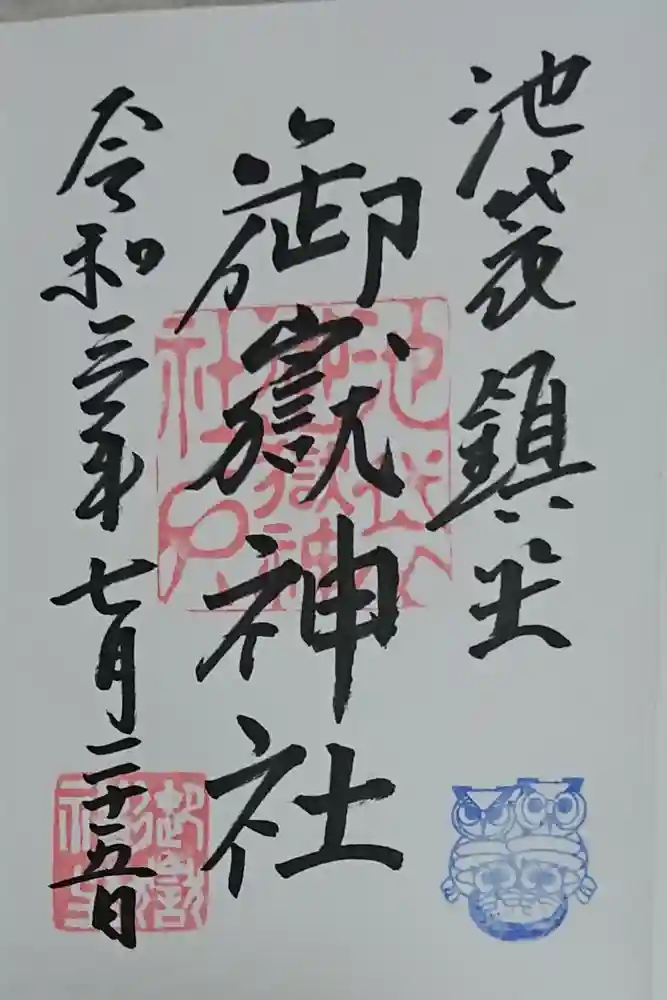 池袋鎮坐
御嶽神社
令和三年七月二十五日